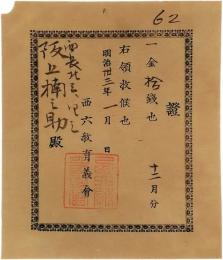 62
證
一金拾錢也
十二月分
右領收候也
明治卅三年一月 日
西六教育義會
殿